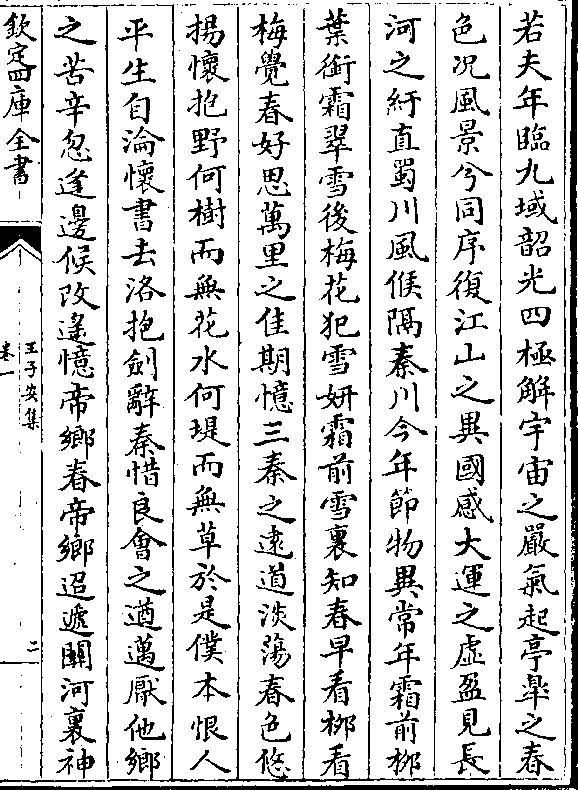 若夫年臨九域韶光四極解宇宙之嚴氣起亭臯之春
色况風景兮同序復江山之異國感大運之虛盈見長
河之紆直蜀川風候隔秦川今年節物異常年霜前栁
葉銜霜翠雪後梅花犯雪妍霜前雪裏知春早看栁看
梅覺春好思萬里之佳期憶三秦之逺道淡蕩春色悠
揚懷抱野何樹而無花水何堤而無草於是僕本恨人
平生自淪懷書去洛抱劍辭秦惜良會之遒邁厭他鄉
之苦辛忽逢邊候改遙憶帝鄉春帝鄉迢遞關河裏神
欽定四庫全書
王子安集
卷一
二